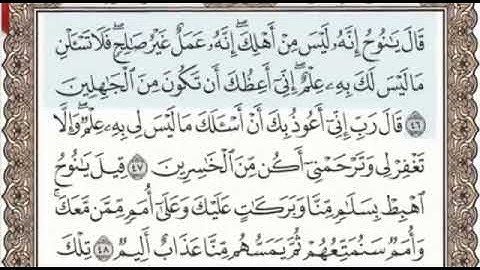 قَالَ يَٰنُوحُ إِنَّهُۥ لَيْسَ مِنْ أَهْلِكَ ۖ إِنَّهُۥ عَمَلٌ غَيْرُ صَٰلِحٍ ۖ فَلَا تَسْـَٔلْنِ
مَا لَيْسَ لَكَ بِهِۦ عِلْمٌ ۖ إِنِّىٓ أَعِظُكَ أَن تَكُونَ مِنَ ٱلْجَٰهِلِينَ
٤٦ قَالَ رَبِّ إِنِّىٓ أَعُوذُ بِكَ أَنْ أَسْـَٔلَكَ مَا لَيْسَ لِى بِهِۦ عِلْمٌ ۖ وَإِلَّا
تَغْفِرْ لِى وَتَرْحَمْنِىٓ أَكُن مِّنَ ٱلْخَٰسِرِينَ ٤٧ قِيلَ يَٰنُوحُ
ٱهْبِطْ بِسَلَٰمٍ مِّنَّا وَبَرَكَٰتٍ عَلَيْكَ وَعَلَىٰٓ أُمَمٍ مِّمَّن مَّعَكَ ۚ
وَأُمَمٌ سَنُمَتِّعُهُمْ ثُمَّ يَمَسُّهُم مِّنَّا عَذَابٌ أَلِيمٌ ٤٨ تِلْكَ